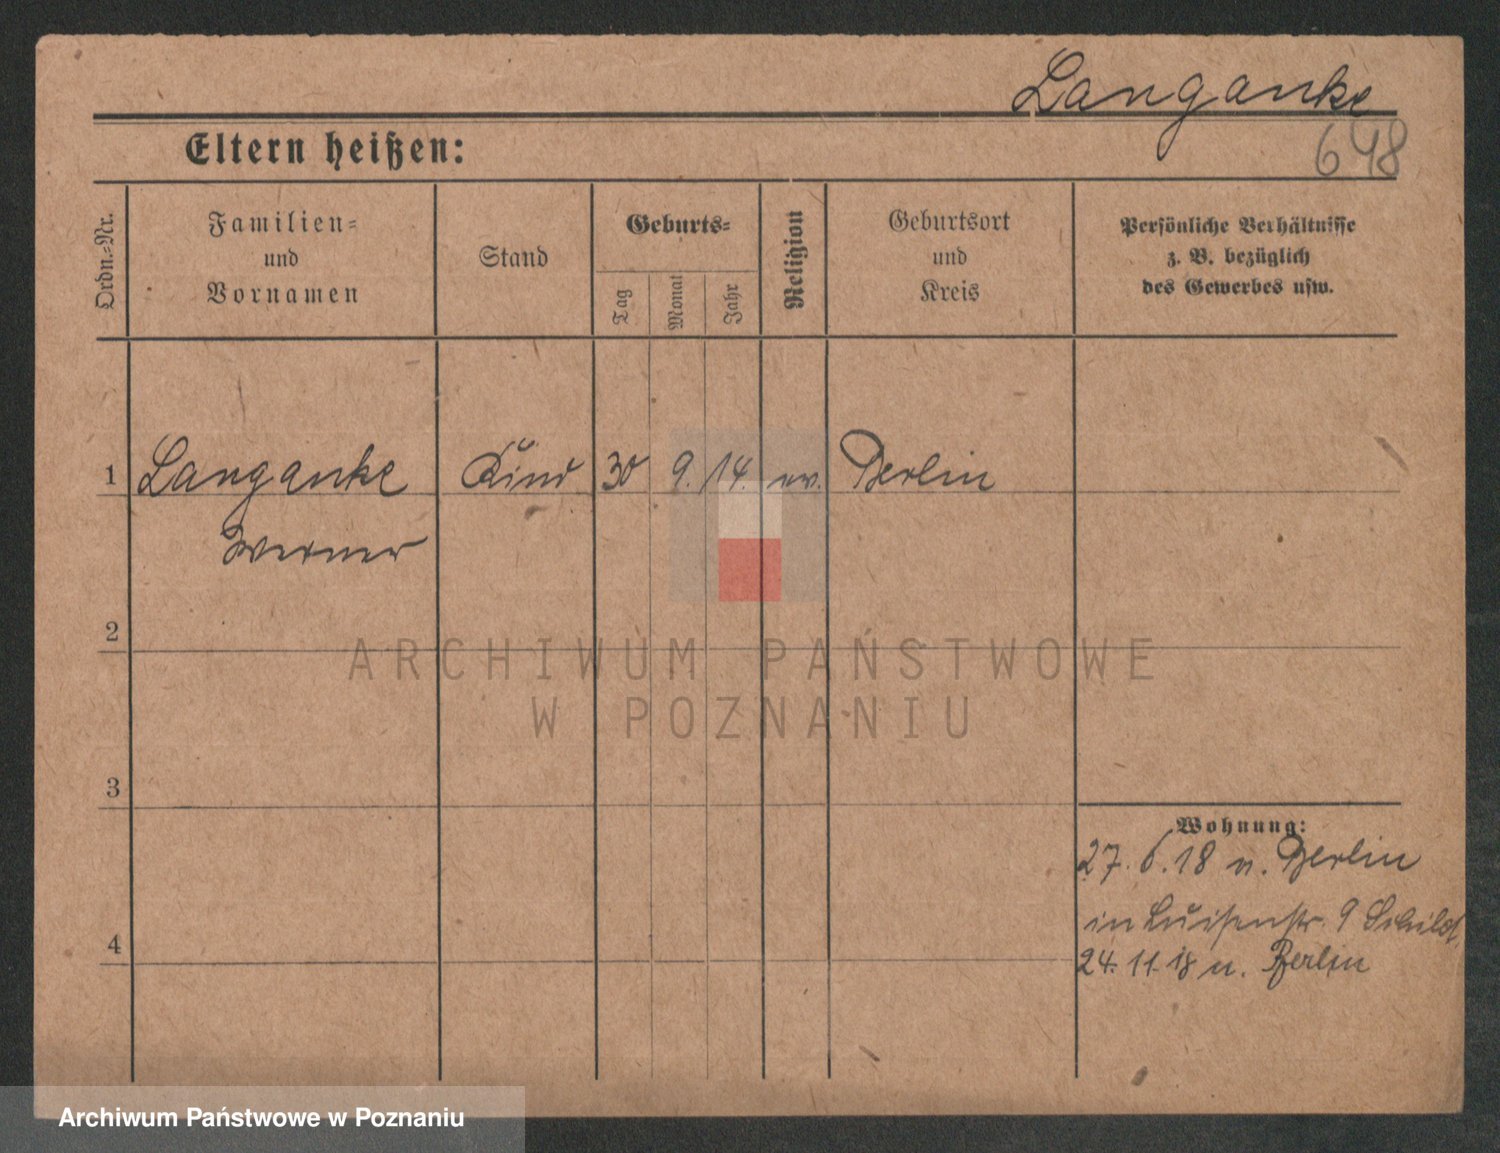 Langanke
648
Eltern heißen:
Ordn.-Nr.
Familien-
und
Vornamen
Stand
Geburts-
Tag
Monat
Jahr
Religion
Geburtsort
und
Kreis
Persönliche Verhältnisse
z. B. bezüglich
des Gewerbes usw.
1 Langanke Kind 30 9. 14. ev. Berlin
Werner
2
ARCHIWUM PAŃSTWOWE
W POZNANIU
3
Wohnung:
27. 6. 18 v. Berlin
in Luisenstr. 9
4
24. 11. 18 n. Berlin
Archiwum Państwowe w Poznaniu